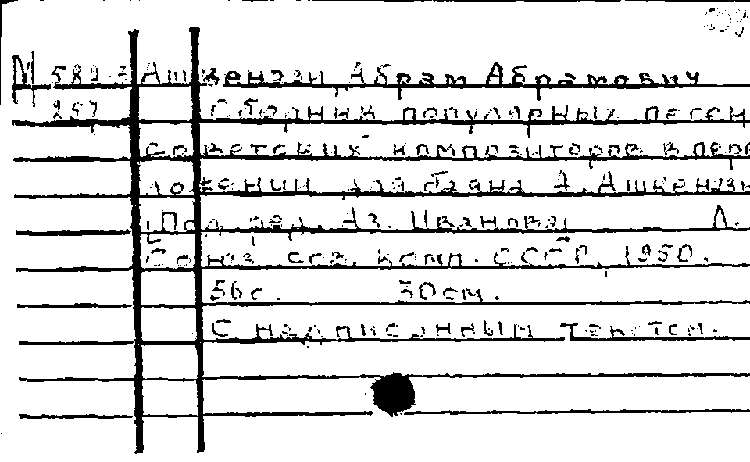 М 582-3 Ашкенази, Абрам Абрамович
257 Сборник популярных песен
советских композиторов в пере
ложении для баяна А. Ашкенази
Под ред. Аз. Иванова Л.
Союз сов. комп. СССР, 1950.
56 с. 30 см.
С надписанным текстом.